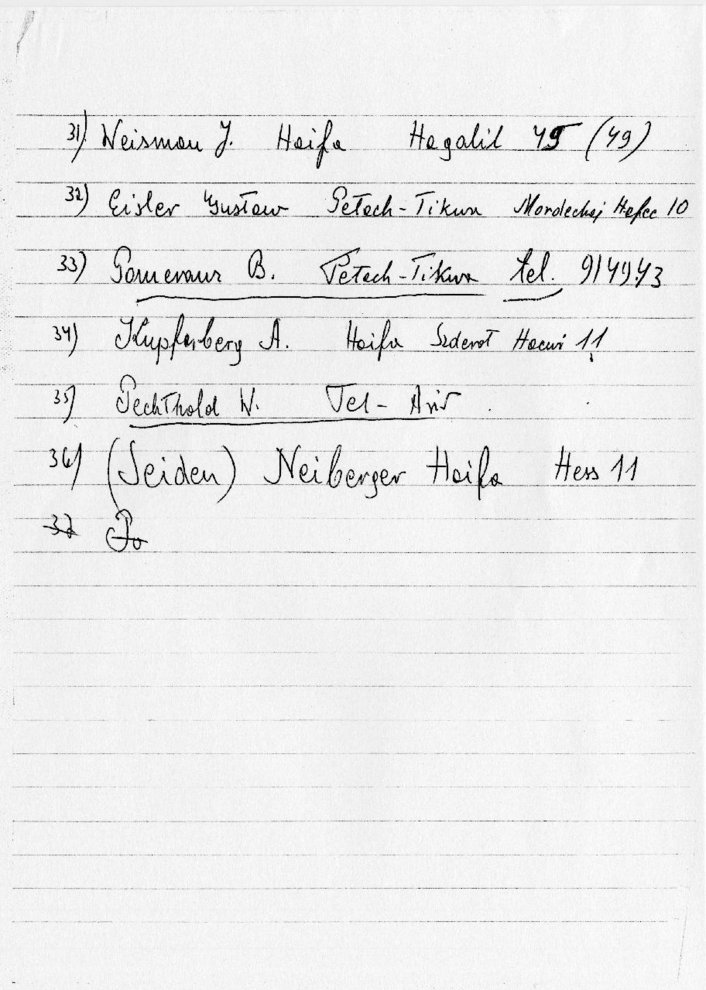 31) Weisman J. Haifa Hagalil 45 (49)
32) Eisler Gustaw Petach-Tikwa Mordechaj Hefec 10
33) Pomeranz B. Petach-Tikwa tel. 914943
34) Kupferberg A. Haifa Szderot Hacwi 11
35) Pechthold W. Tel-Aviv
36) (Seiden) Neiberger Haifa Hess 11
37 Po